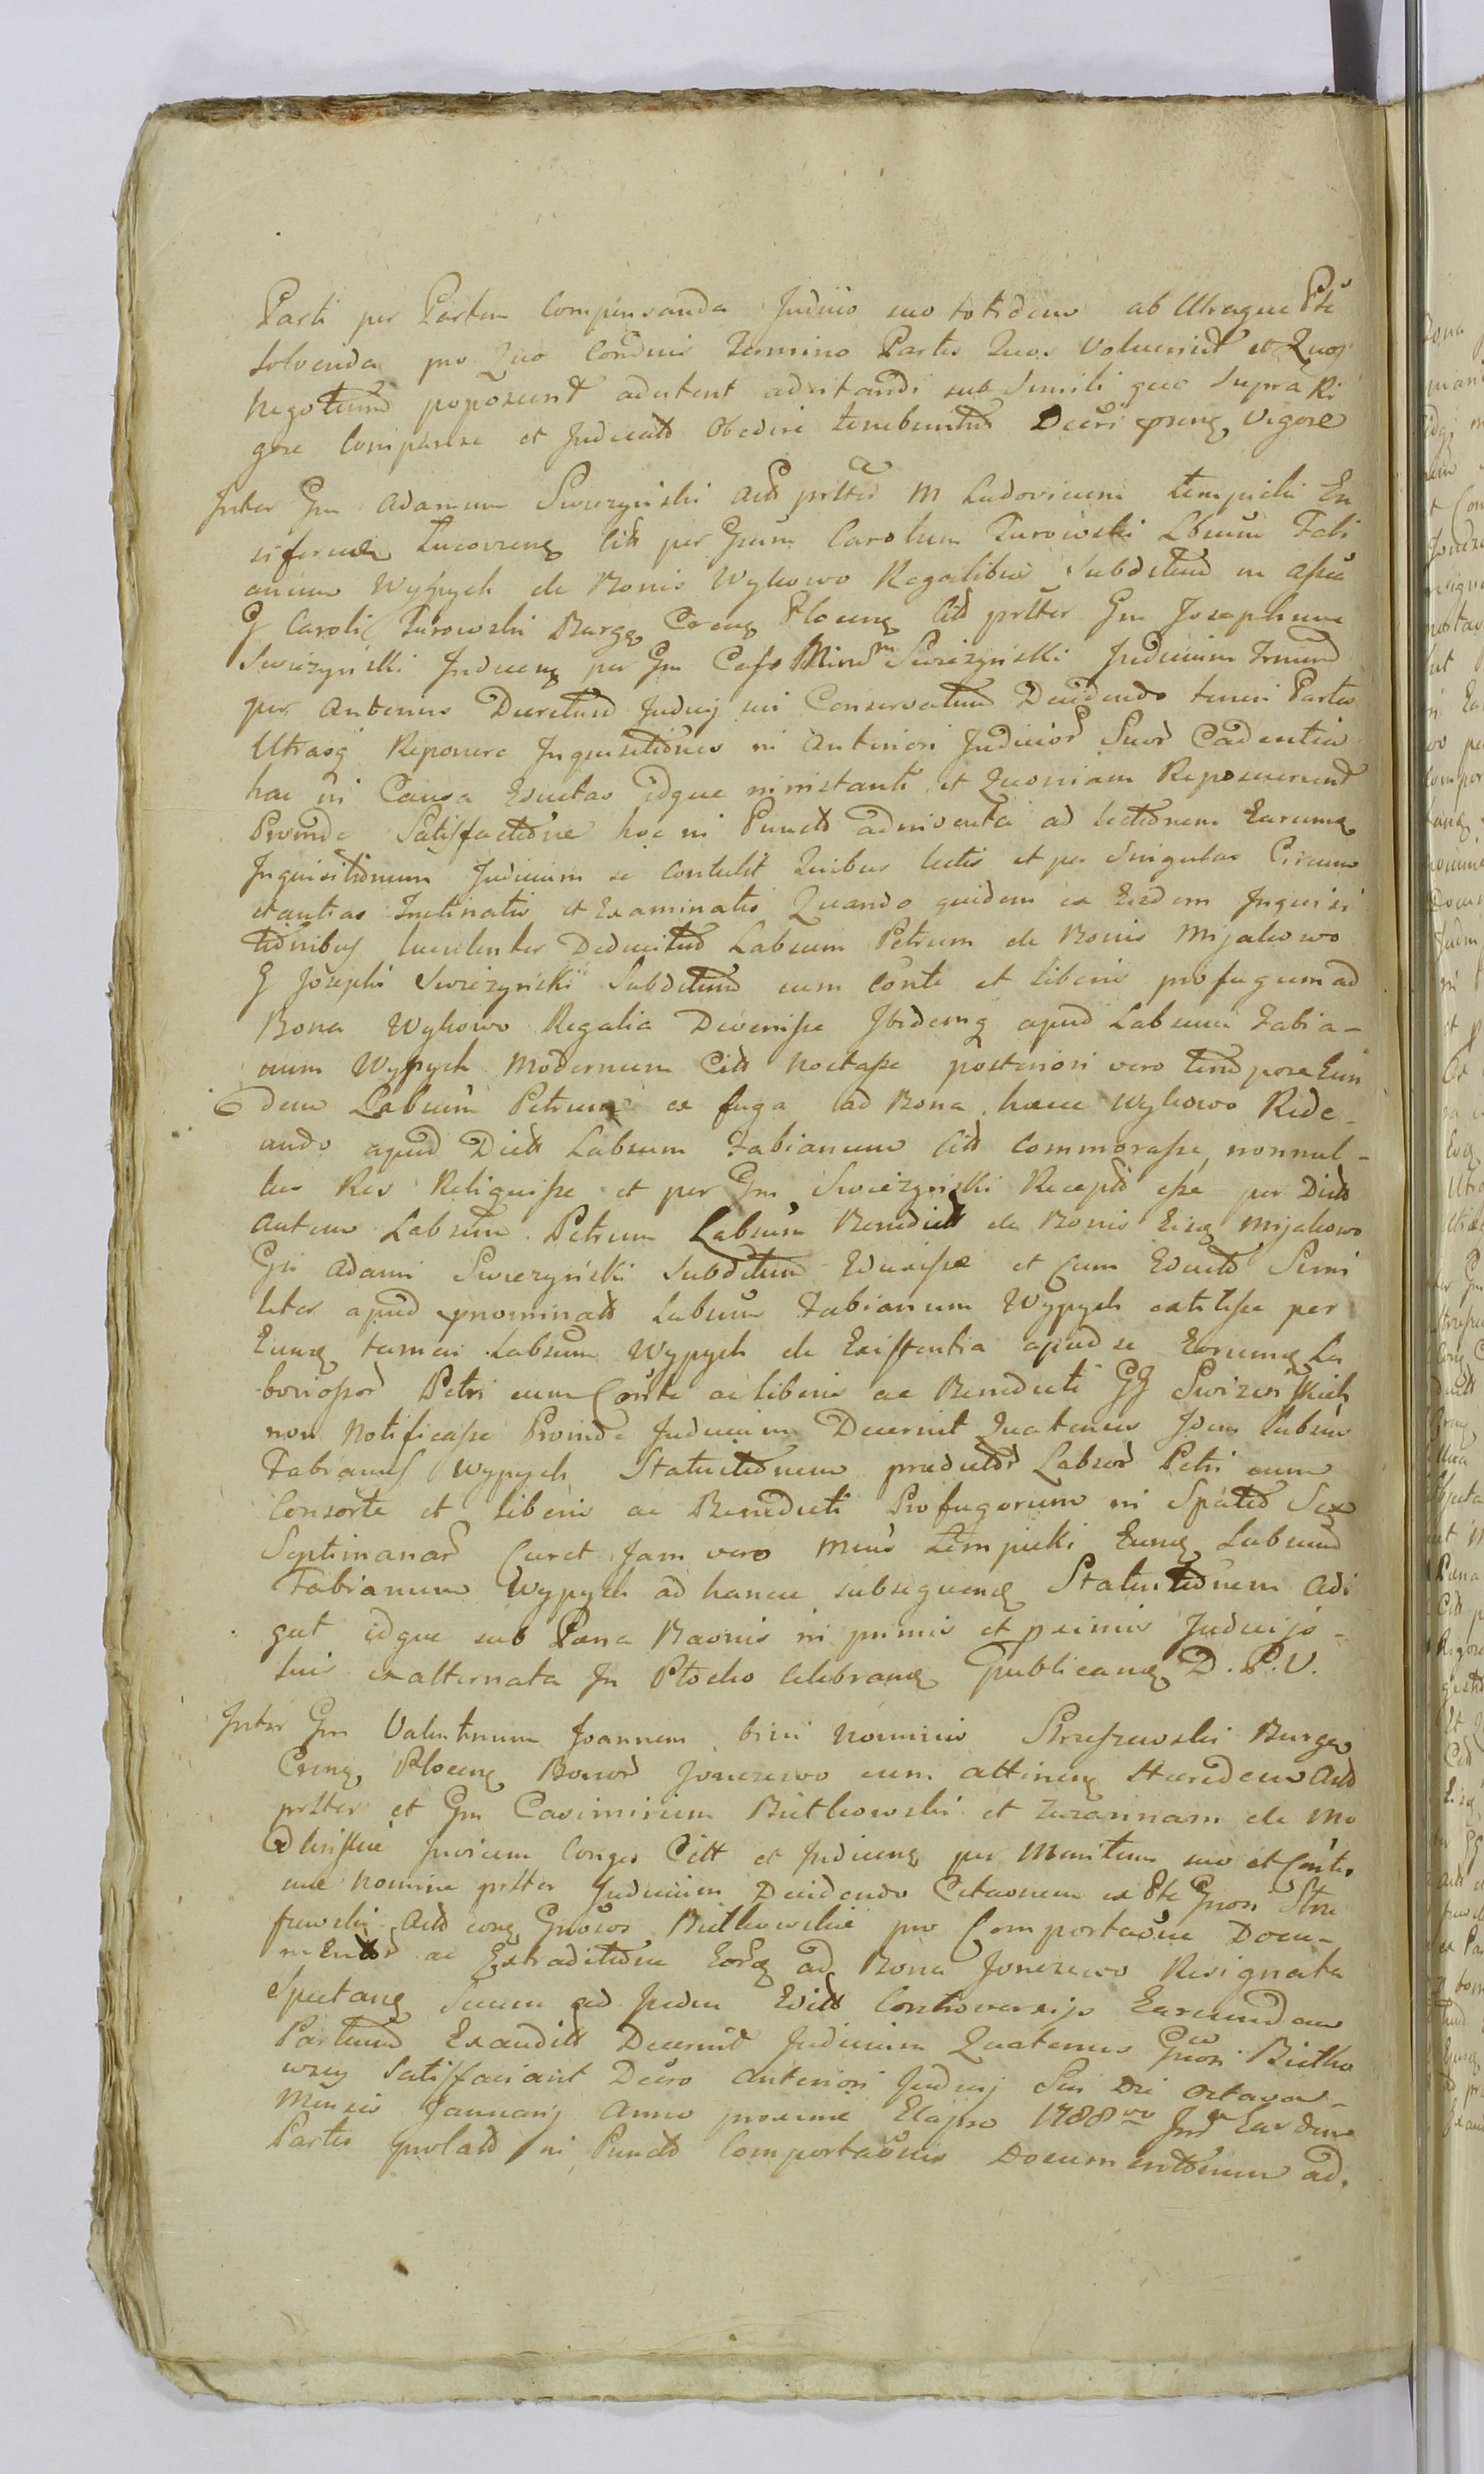 Parti per Partem Compensanda Judicio suo totidem ab Utraque Pte
solvenda pro Quo Condnis Termino Partes Quos Voluerint et Quoq
Negotium poposcerit adcitent adcitandi sub Simili quo Supra Ri
gore Comparere et Judicato Obedire tenebuntur Decri prsng Vigore
Inter Gm Adamum Swiezynski Act prster M Ludovicum Lempicki En
siferum Citt per Gsum Carolum Turowski Lbsum Fabi
anum Wypych de Bonis Wykowo Regalibus Subditum in assa
G Caroli Turowski Burg Crens Plocens Citt prster Gm Josephum
Swiezynski Inducens per Gm Swiezynski Judicium
per Anterius Decretum Judicij sui Conservatum Decidendo teneri Partes
Utrasq Reponere Inquisitiones in Anteriori Judicior Suor Cadentia
hac in Causa Eductas idque in instanti et Quoniam Reposuerunt
Proinde Satisfactione hoc in Puncto adinventa ad lectionem Earumq
Inquisitionum Judicium se contulit Quibus lectis et per Singulas Circum
stantias Trutinatis et Examinatis Quando quidem ex Eisdem Inquisi
tionibus luculenter Deducitur Labsum Petrum de Bonis Mijakowo
G Josephi Swiezynski Subditum cum Conte et liberis profugum ad
Bona Wykowo Regalia Devenisse Ibidemq apud Labsum Fabia-
num Wypych Modernum Citt Noctasse posteriori vero Tempore Eun
dem Labsum Petrum ex fuga ad Bona haec Wykowo Rede-
undo apud Dictt Labsum Fabianum Citt Commorasse, nonnul-
las Res Reliquisse et per Gm Swiezynski Recepto esse per Dictt
Autem Labsum Petrum Labsum Benedictt de Bonis Eisq Mijakowo
Gsi Adami Swiezynski Subditum Eduxisse et Cum Educto Simi
liter apud prnominatt Labsum Fabianum Wypych extitisse per
Eumq tamen Labsum Wypych de Existentia apud se Eorumq La
boriosor Petri cum Conte ac liberis ac Benedicti GG Swiezynskich
non Notificasse Proinde Judicium Decernit Quatenus Idem Labsus
Fabianus Wypych Statuitionem praedictor Labsor Petri cum
Consorte et liberis ac Benedicti Profugorum in Spatio Sex
Septimanar Curet Jam vero Lempicki Eumq Labsum
Fabianum Wypych ad hancce subsequens Statuitionem Adi
gat idque sub Paena Banis in primis et proximis Judicijs-
suis exalternata In Plocko Celebrand Publicand D. P. V.
Inter Gm Valentinum Joannem bini Nominis Strzeszewski Burg
Crens Plocens Bonor Jonczewo cum attinens Haeredem Act
prster et Gm Casimirum Bietkowski et Zuzannam de Mo
dliński Invicem Conges Citt et Inducens per Maritum suo et Contis
suae Nomine prster Judicium Decidendo Citaonem ex Pte Gnosi Strze
szewski Act eong Gnosos Bietkowskie pro Comportaone Docu-
mentor ac Extraditione Eorq ad Bona Jonczewo Resignata
Spectans Suum ad Judm Editt Controversijs Earumdem
Partium Exauditt Decernit Judicium Quatenus Gnosi Bietko
wscy Satisfaciant Decro Anteriori Judicij Sui Die Octava-
Mensis Januarij Anno proxime Elapso 1788vo Intr Easdem
Partes prolato in Puncto Comportaonis Documentorum ad.